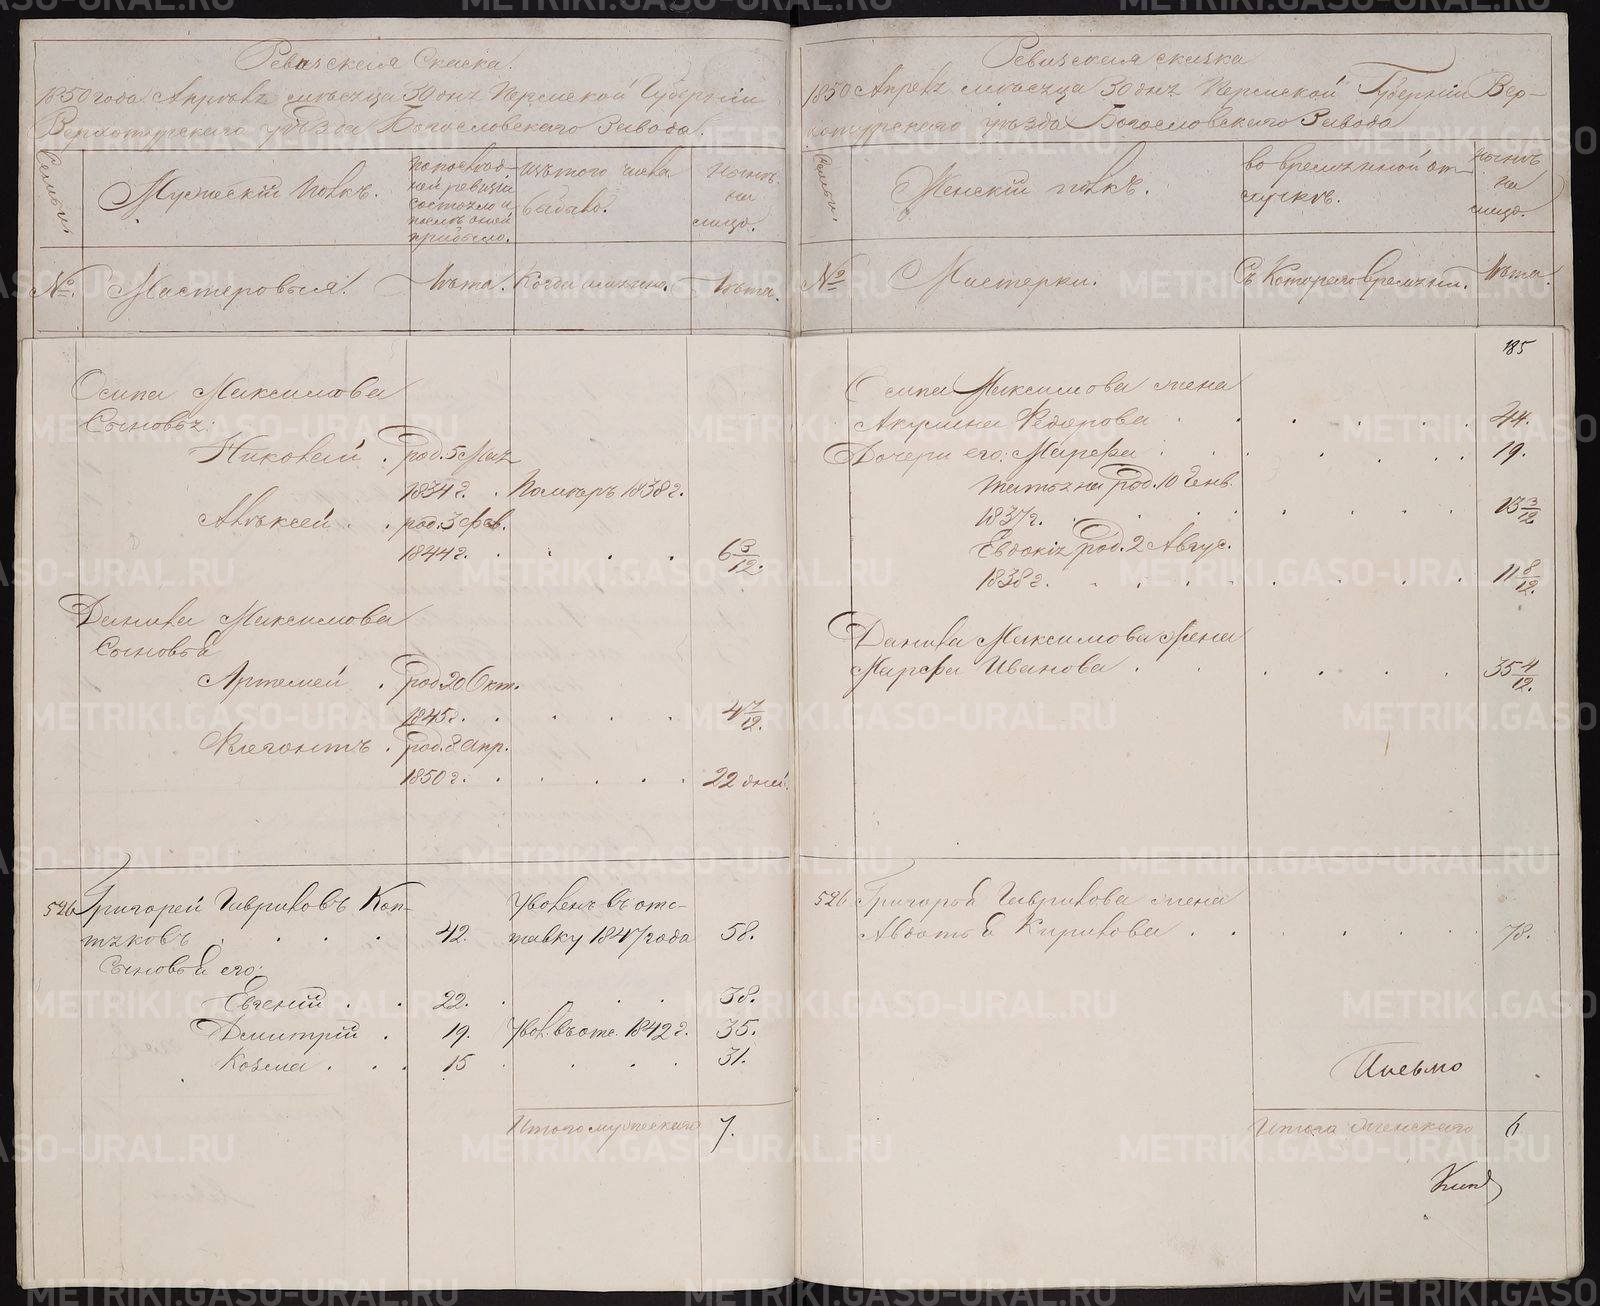 Ревизская Сказка.
1850 года Апрѣля мѣсяца 30 дня Пермской Губерніи
Верхотурскаго уѣзда Богословскаго Завода.
Семьи.
Мужескій полъ.
по послѣд-
ней ревизіи
состояло и
послѣ оной
прибыло.
изъ того числа
выбыло.
Нынѣ
на
лицо.
№
Мастеровыя.
Лѣта.
Когда именно.
Лѣта.
Осипа Максимова
Сыновья:
Николай . род. 5 Мая
1834 г. . Померъ 1838 г.
Алексѣй . . род. 3 Фев.
1844 г. . . . . 6 3/12.
Данила Максимова
Сыновья
Артемей . род 20 Окт.
1845 г. . . . . 4 7/12.
Леонтъ . род. 8 Апр.
1850 г. . . . . 22 дней.
526 Григорей Гавриловъ Коп-
тяковъ . . . . 42. Уволенъ въ отс-
тавку 1847 года 58.
Сыновья его:
Евгений . . 22. . . . 38.
Дмитрій . 19. Увол. въ отс. 1842 г. 35.
Козма . . . 15 . . . . 31.
Итого мужескаго 7.
Ревизская сказка
1850 Апреля мѣсяца 30 дня Пермской Губерніи Вер-
хотурскаго уѣзда Богословскаго Завода
Семьи.
Женскій полъ.
во временной от-
лучкѣ.
Нынѣ
на
лицо.
№
Мастерки.
Съ Котораго времени.
Лѣта.
185
Осипа Максимова жена
Акулина Федорова . . . . . . 44.
Дочери его: Марѳа . . . . . 19.
Татьяна род. 10 Генв.
1837 г. . . . . . . 13 3/12
Евдокія род. 2 Авгус.
1838 г. . . . . . . 11 8/12.
Данила Максимова жена
Марѳа Иванова . . . . . 35 4/12.
526 Григорья Гаврилова жена
Авдотья Кирилова . . . . . . 78.
Письмо
Итого женскаго 6